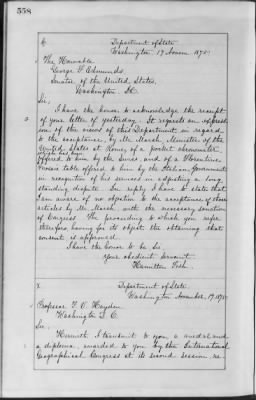 558
Department of State
Washington 17 Novem 1875
The Honorable
George F. Edmunds,
Senator of the United States,
Washington, D.C.
Sir,
I have the honor to acknowledge the receipt
of your letter of yesterday. It requests an express-
ion of the views of this Department in regard
to the acceptance, by Mr. Marsh, Minister of the
United States at Rome, of a pocket chronometer
offered to him by the Swiss, and of a Florentine
mosaic table offered to him by the Italian Government
in recognition of his services in adjusting a long
standing dispute. In reply I have to state that
I am aware of no objection to the acceptance of those
articles by Mr. Marsh, with the necessary sanction
of Congress. The proceeding to which you refer
therefore, having for its object the obtaining that
consent is approved.
I have the honor to be Sir
Your obedient servant
Hamilton Fish.
Department of State
Washington November, 17 1875
Professor F. V. Hayden
Washington D.C.
Sir,
Herewith I transmit to you, a medal and
a diploma, awarded to you by the International
Geographical Congress at its second session, re-